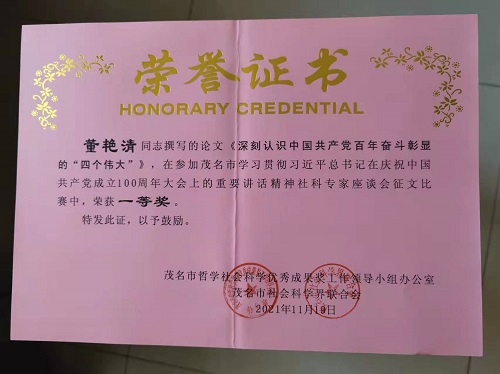 荣誉证书
HONORARY CREDENTIAL
董艳清同志撰写的论文《深刻认识中国共产党百年奋斗彰显
的“四个伟大”》，在参加茂名市学习贯彻习近平总书记在庆祝中国
共产党成立100周年大会上的重要讲话精神社科专家座谈会征文比
赛中，荣获一等奖。
特发此证，以予鼓励。
茂名市哲学社会科学优秀成果奖工作领导小组办公室
茂名市社会科学界联合会
2021年11月19日